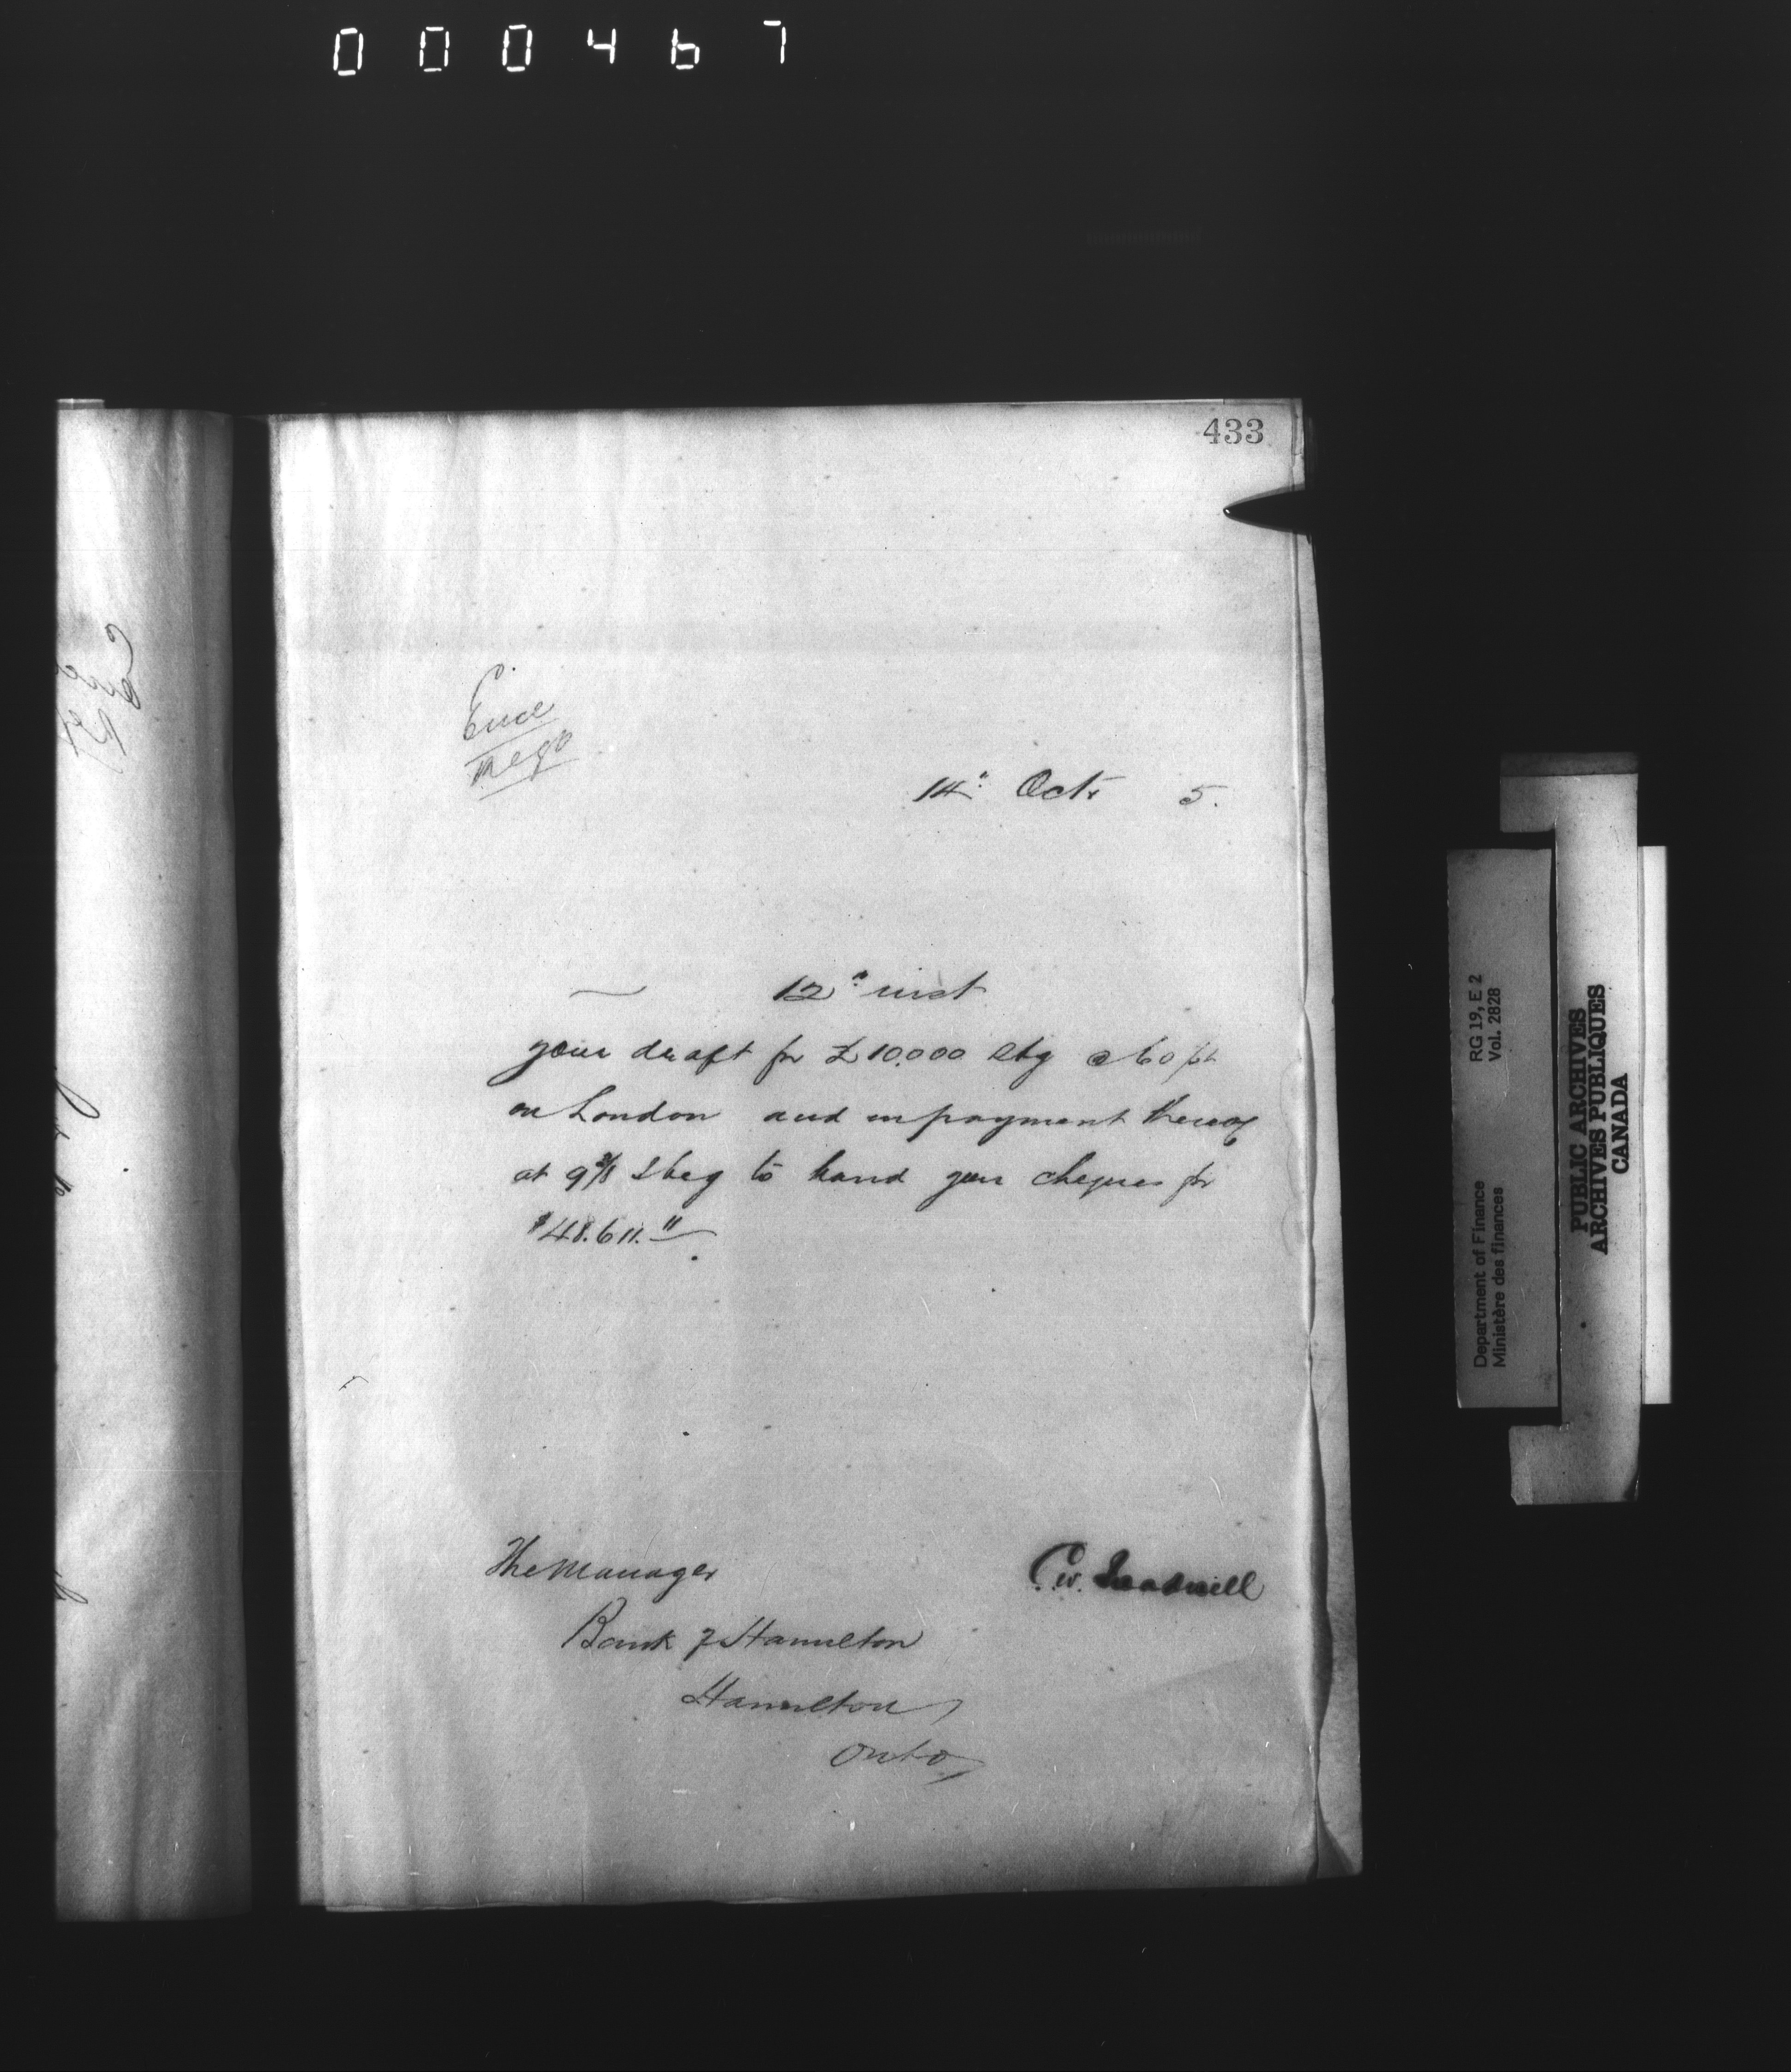 000467
433
Encl
Regd
14" Octr 5.
— 12" inst
your draft for £10,000 Stg @ 60 ds
on London and in payment thereof
at 9 3/8 I beg to hand you cheques for
$48.611.11
The Manager
C. W. Treadwell
Bank of Hamilton
Hamilton
Onto
Department of Finance RG 19, E 2
Ministère des finances Vol. 2828
PUBLIC ARCHIVES
ARCHIVES PUBLIQUES
CANADA